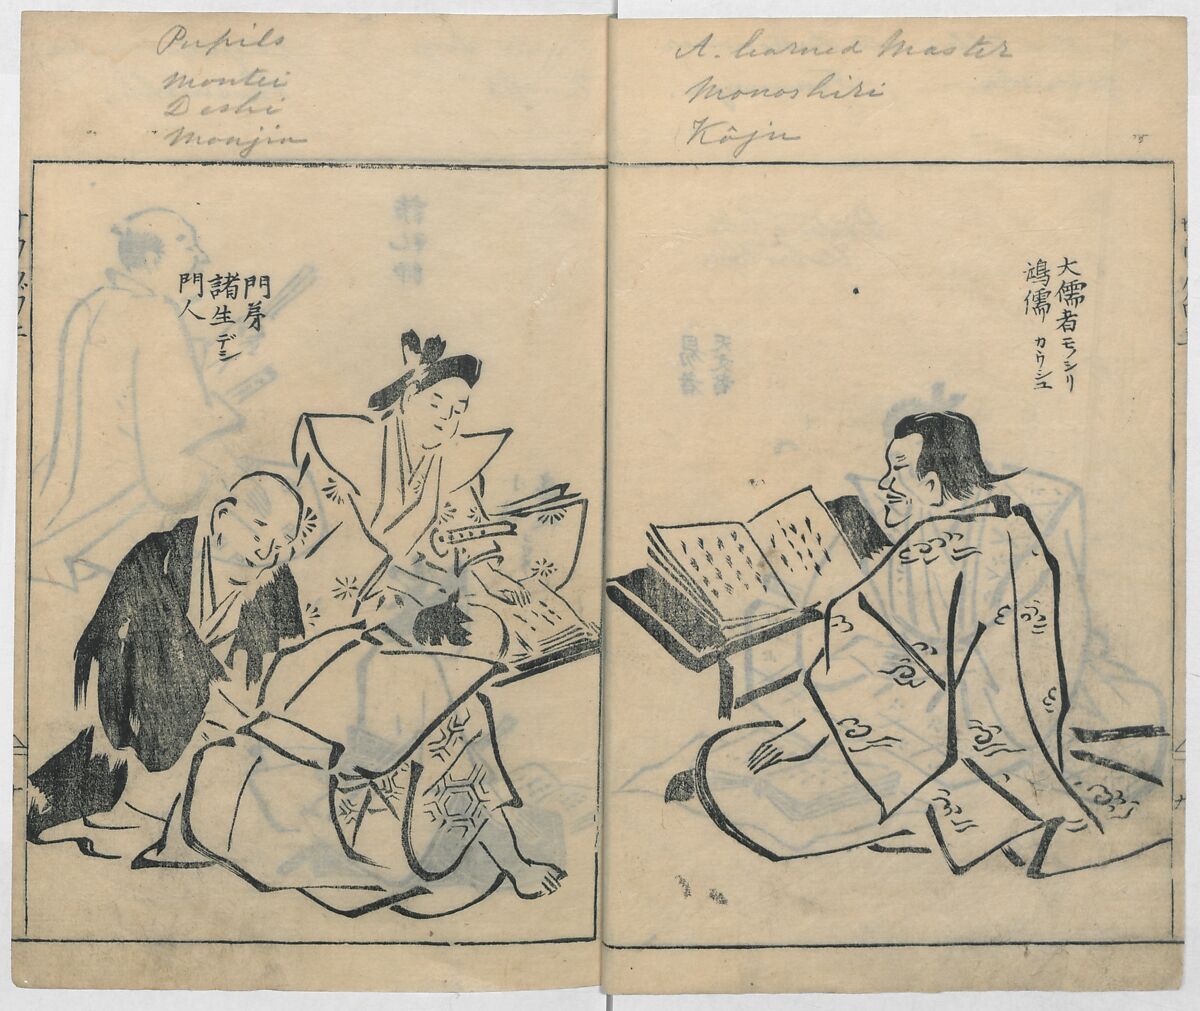 Pupils
Montei
Deshi
" " Monjin
A. learned Master
Monoshiri
Kôju
大儒者モノシリ
鴻儒 カウジユ
門弟
諸生デシ
門人